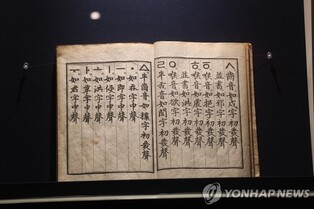 ㅅ齒音如戌字初發聲
並書如邪字初發聲
ㆆ喉音如挹字初發聲
ㅎ喉音如虛字初發聲
並書如洪字初發聲
ㅇ喉音如欲字初發聲
ㄹ半舌音如閭字初發聲
ㅿ半齒音如穰字初發聲
ㆍ如呑字中聲
ㅡ如即字中聲
ㅣ如侵字中聲
ㅗ如洪字中聲
ㅏ如覃字中聲
ㅜ如君字中聲
YONHAP NEWS